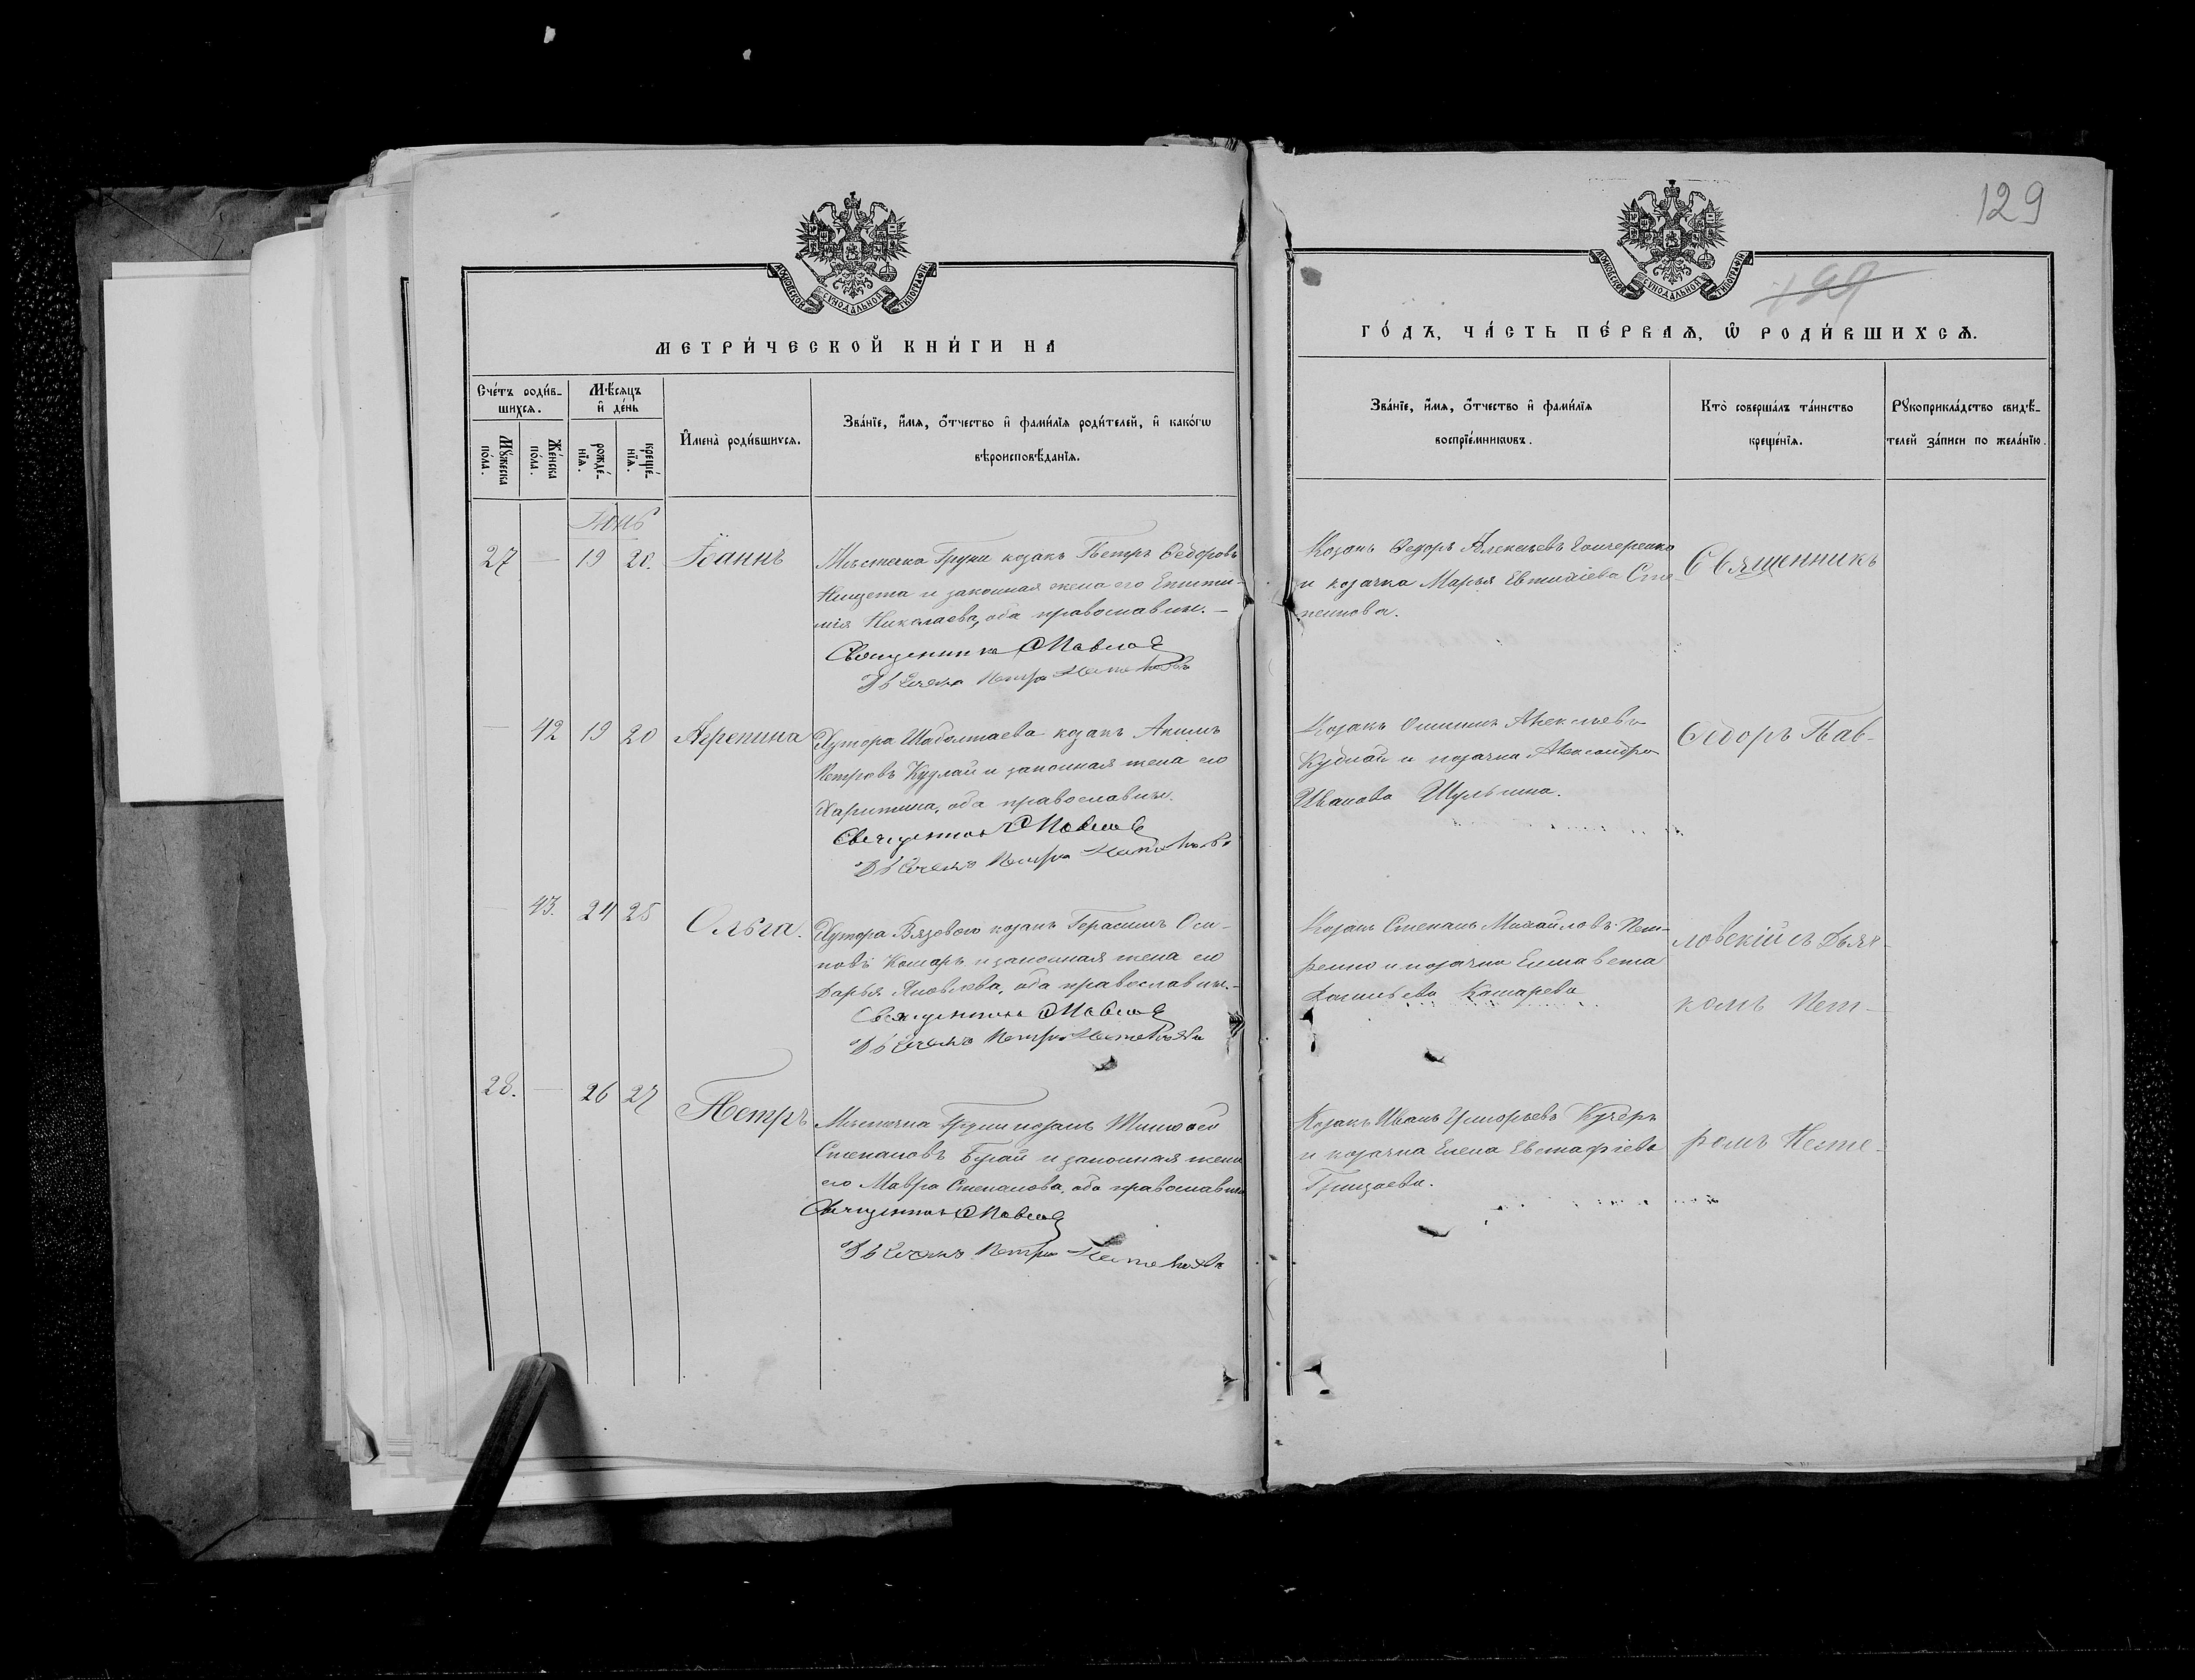 129
МОСКОВСКОЙ СѴНОДАЛЬНОЙ ТИПОГРАФІИ
МОСКОВСКОЙ СѴНОДАЛЬНОЙ ТИПОГРАФІИ
МЕТРИ́ЧЕСКОЙ КНИ́ГИ НА
ГО́ДЪ, ЧА́СТЬ ПЕ́РВАѦ, Ѿ РОДИ́ВШИХСѦ.
Сче́тъ роди́в-
шихсѧ.
Мꙋ́жеска
по́ла.
Же́нска
по́ла.
Мѣ́сѧцъ
и҆ де́нь
рожде́-
нїѧ.
креще́-
нїѧ.
И҆мена̀ роди́вшихсѧ.
Зва́нїе, и҆́мѧ, ѻ҆́тчество и҆ фами́лїѧ роди́телей, и҆ како́гѡ
вѣроисповѣ́данїѧ.
Зва́нїе, и҆́мѧ, ѻ҆́тчество и҆ фами́лїѧ
воспрїе́мникѡвъ.
Кто̀ соверша́лъ та́инство
креще́нїѧ.
Рꙋкоприкла́дство свидѣ́-
телей за́писи по жела́нїю.
Іюнь
27 — 19 20. Іоаннъ
Мѣстечка Груни козакъ Петръ Ѳедоровъ
и законная жена его
Николаева, оба православн. —
Священникъ Ѳ Павлов
Дьячекъ Петръ
Козакъ Ѳедоръ Алексѣевъ Гончаренко
и козачка Марья Евтихіева Сте-
Священникъ
— 42 19 20 Агрепина
Хутора Шаболтаева козакъ Акимъ
Петровъ и законная жена его
Харитина, оба православн.
Священник Ѳ Павлов
Дьячекъ Петръ
Козакъ Алексѣевъ
и козачка Александра
Иванова Шульгина.
Ѳедоръ Пав-
— 43. 24 25 Ольга.
Хутора Вязоваго козакъ Герасимъ Оси-
повъ Комаръ и законная жена его
Дарья Яковлева, оба православн. —
Священник Ѳ Павлов
Дьячекъ Петръ
Козакъ Степанъ Михайловъ Пет-
ренко и козачка Елисавета
Комарева
ловскій съ Дьяч-
комъ Пет-
28. — 26 27 Петръ
Мѣстечка Груни козакъ Тимоѳей
Степановъ и законная жена
его Мавра Степанова, оба православн
Священник Ѳ Павлов
Дьячекъ Петръ
Козакъ Иванъ Григорьевъ Кучеръ
и козачка Елена Евстафіева
Грицаева.
ромъ Несте-